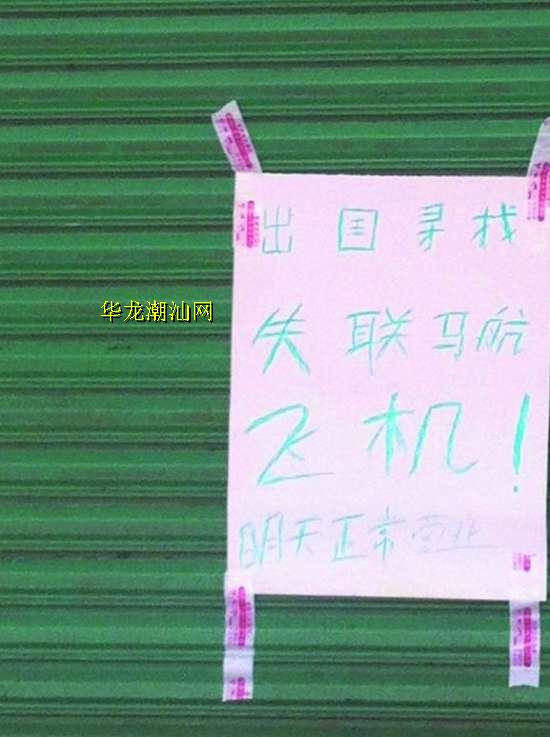 出国寻找
失联马航
飞机!
明天正常营业
华龙潮汕网